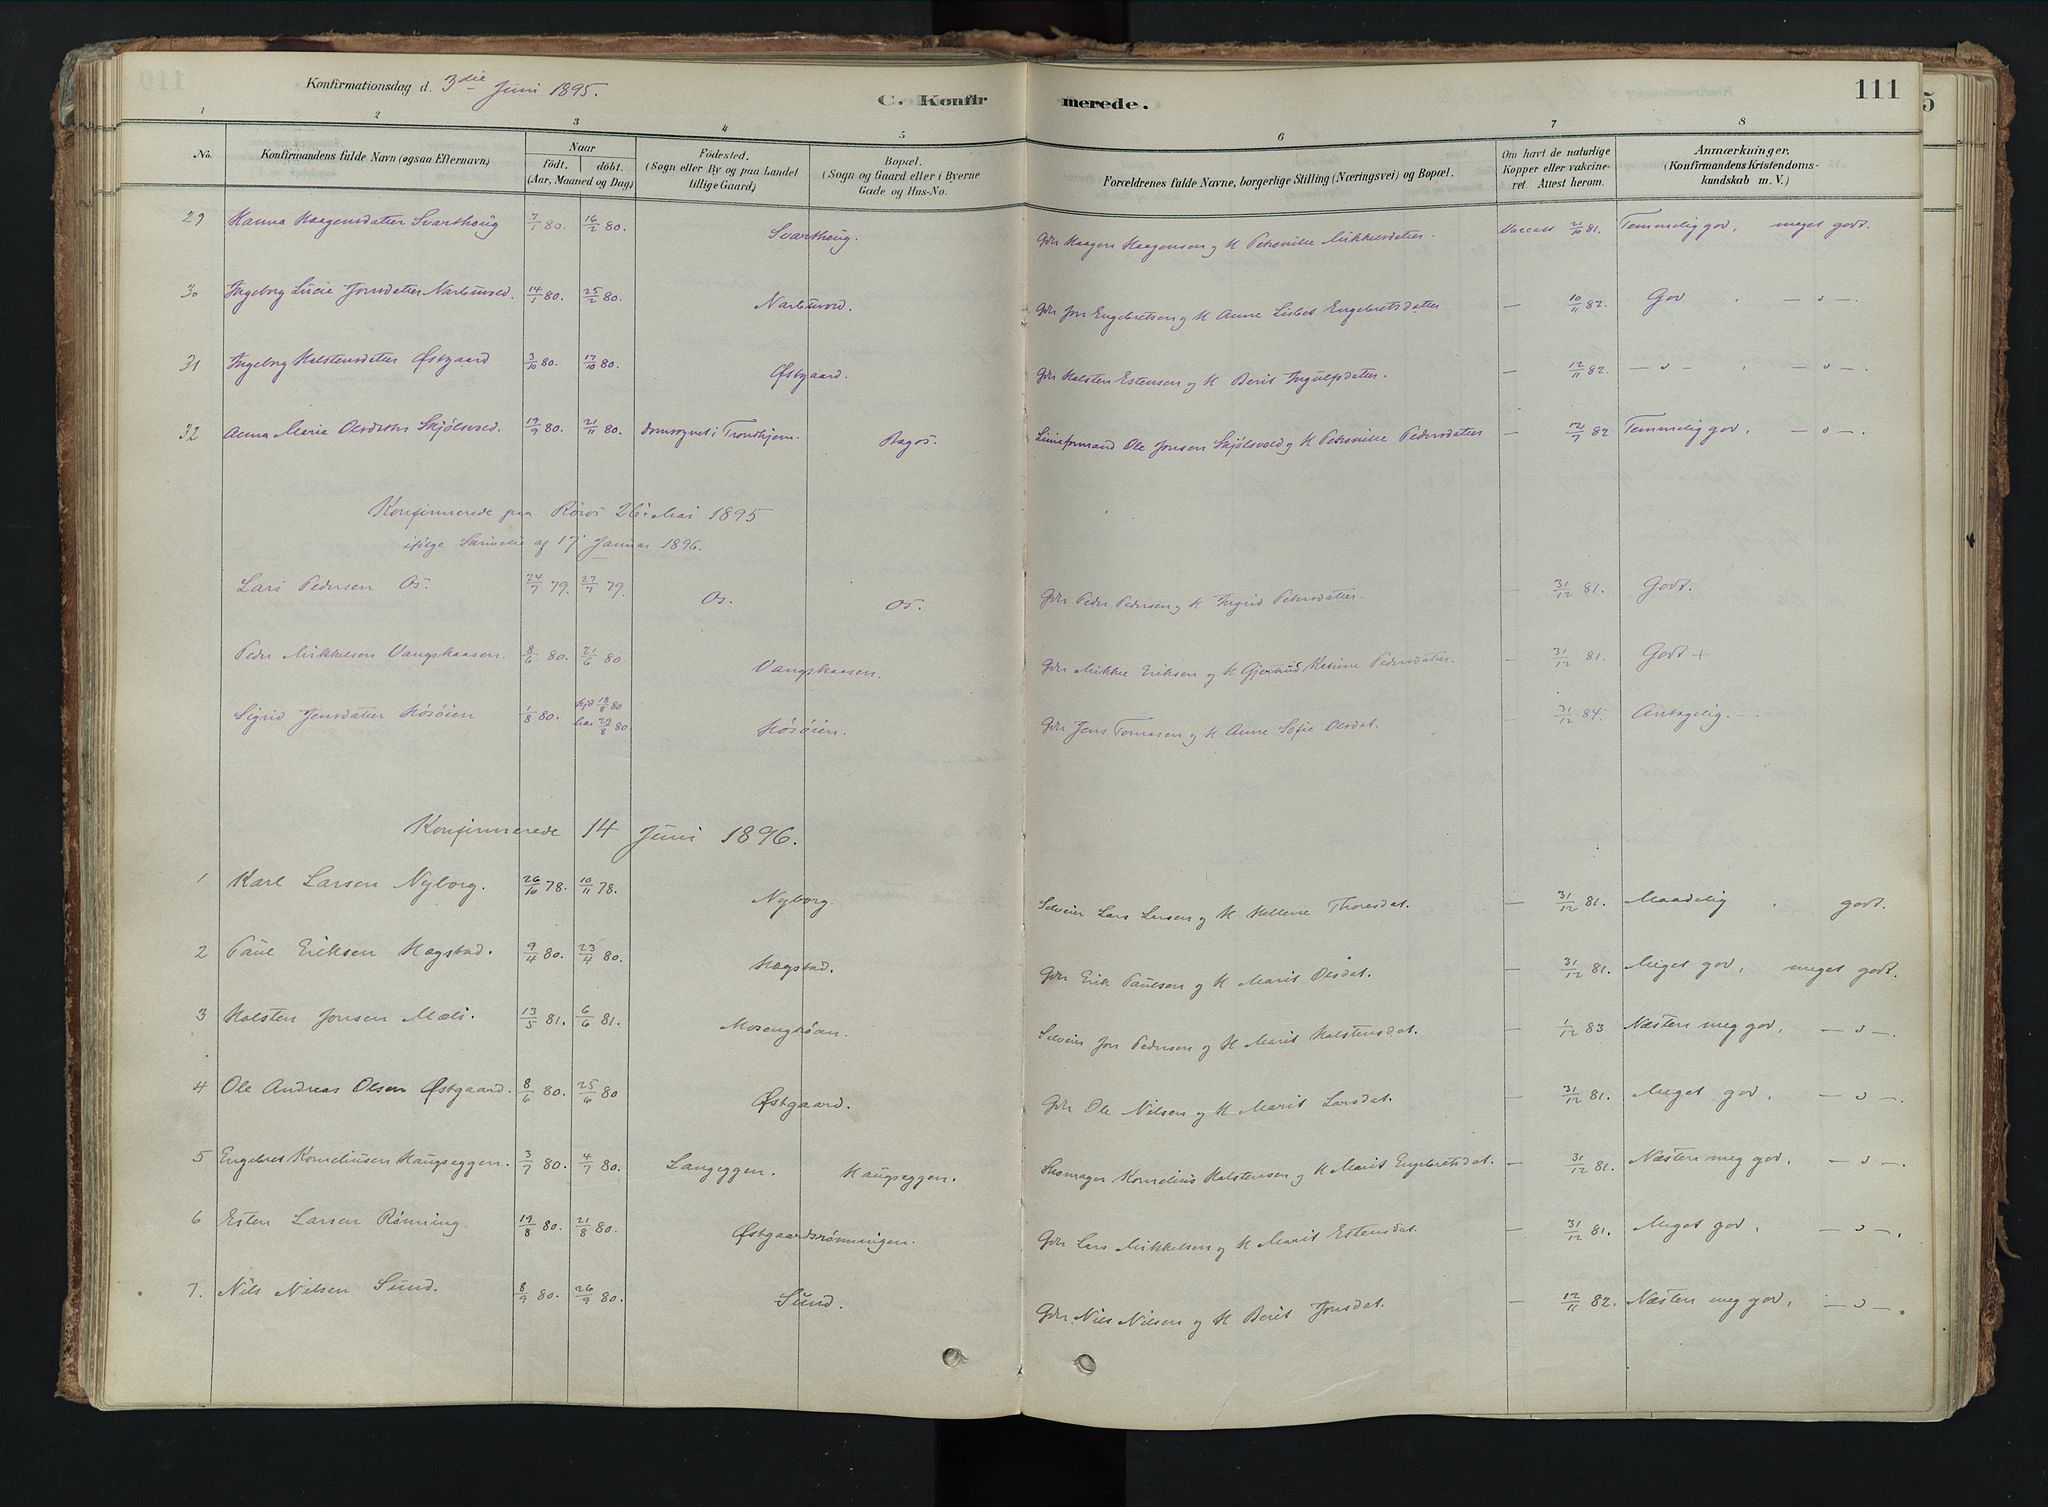 Konfirmationsdag d. 3die Juni 1895.
C. Konfirmerede.
111
1 2 3 4 5 6 7 8
No. Konfirmandens fulde Navn (ogsaa Efternavn) Naar födt. döbt. (Aar, Maaned og Dag) Födested. (Sogn eller By og paa Landet tillige Gaard) Bopæl. (Sogn og Gaard eller i Byerne Gade og Hus-No. Forældrenes fulde Navne, borgerlige Stilling (Næringsvei) og Bopæl. Om havt de naturlige Kopper eller vakcineret. Attest herom. Anmærkninger. (Konfirmandens Kristendomskundskab m. V.)
29 Hanna Haagensdatter Svarthoug 7/1 80. 16/2 80. Svarthoug. Gdr Haagen Haagensen og H Petronille Mikkelsdatter. Vaccats 21/10 81. Temmelig god, meget godt.
30 Ingeborg Lucie Jonsdatter Narbuvold. 14/1 80. 25/2 80. Narbuvold. Gdr Jon Engebretsen og H Anne Lisbet Engebretsdatter — 10/11 82. God, — o —.
31 Ingeborg Halstensdatter Østgaard 3/10 80. 17/10 80. Østgaard. Gdr Halsten Estensen og H Berit Ingulfsdatter. — 12/11 82. — o — , — o —.
32 Anna Maria Olsdatter Skjölsvold. 19/9 80. 21/11 80. domsognet i Tronhjem. Ragos. Linieformand Ole Jonsen Skjölsvold og H Petronille Pedersdatter — 12/7 82 Temmelig god, — o —.
Konfirmerede paa Röros 26. Mai 1895
ifölge Skrivelse af 17 Januar 1896.
Lars Pedersen Os. 24/7 79. 27/7 79. Os. Os. Gdr Peder Pedersen og H Ingrid Petersdatter. — 31/12 81. Godt.
Peder Mikkelsen Vangskaasen. 8/6 80. 21/6 80. Vangskaasen. Gdr Mikkel Eriksen og H Gjertrud Kesine Pedersdatter. — 31/12 81. Godt +
Sigrid Jensdatter Hösöien 1/8 80. hjd 18/8 80 kas 29/8 80. Hösöien. Gdr Jens Tomasen og H Anne Sofie Olsdat. — 31/12 84. Antagelig. —
Konfirmerede 14 Juni 1896.
1 Karl Larsen Nyborg. 26/10 78. 10/11 78. Nyborg. Selveier Lars Larsen og H Hellene Thoresdat. — 31/12 81. Maadelig , godt.
2 Paul Eriksen Hægstad. 9/4 80. 23/4 80. Hægstad. Gdr Erik Paulsen og H Marit Olsdat. — 31/12 81. Meget god, meget godt.
3 Halsten Jonsen Mæli. 13/5 81. 6/6 81. Mosengköan. Selveier Jon Pedersen og H Marit Halstensdat. — 1/12 83 Næsten meg god, — o —.
4 Ole Andreas Olsen Østgaard. 8/6 80. 25/6 80 Østgaard. Gdr Ole Nilsen og H Marit Larsdat. — 31/12 81. Meget god, — o —.
5 Engebret Korneliusen Haugseggen. 3/7 80. 4/7 80. Langeggen. Haugseggen. Kornelius Halstensen og H Marit Engebretsdat. — 31/12 81. Næsten meg god, — o —.
6 Esten Larsen Rönning. 19/8 80. 21/8 80. Østgaardsrönningen. Gdr Lars Mikkelsen og H Marit Estensdat. — 31/12 81. Meget god, — o —.
7. Nils Nilsen Sund. 8/9 80. 26/9 80. Sund. Gdr. Nils Nilsen og H Berit Jonsdat. — 12/11 82. Næsten meg god, — o —.